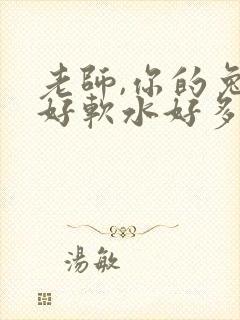 老師,你的兔
好軟水好多
湯敏